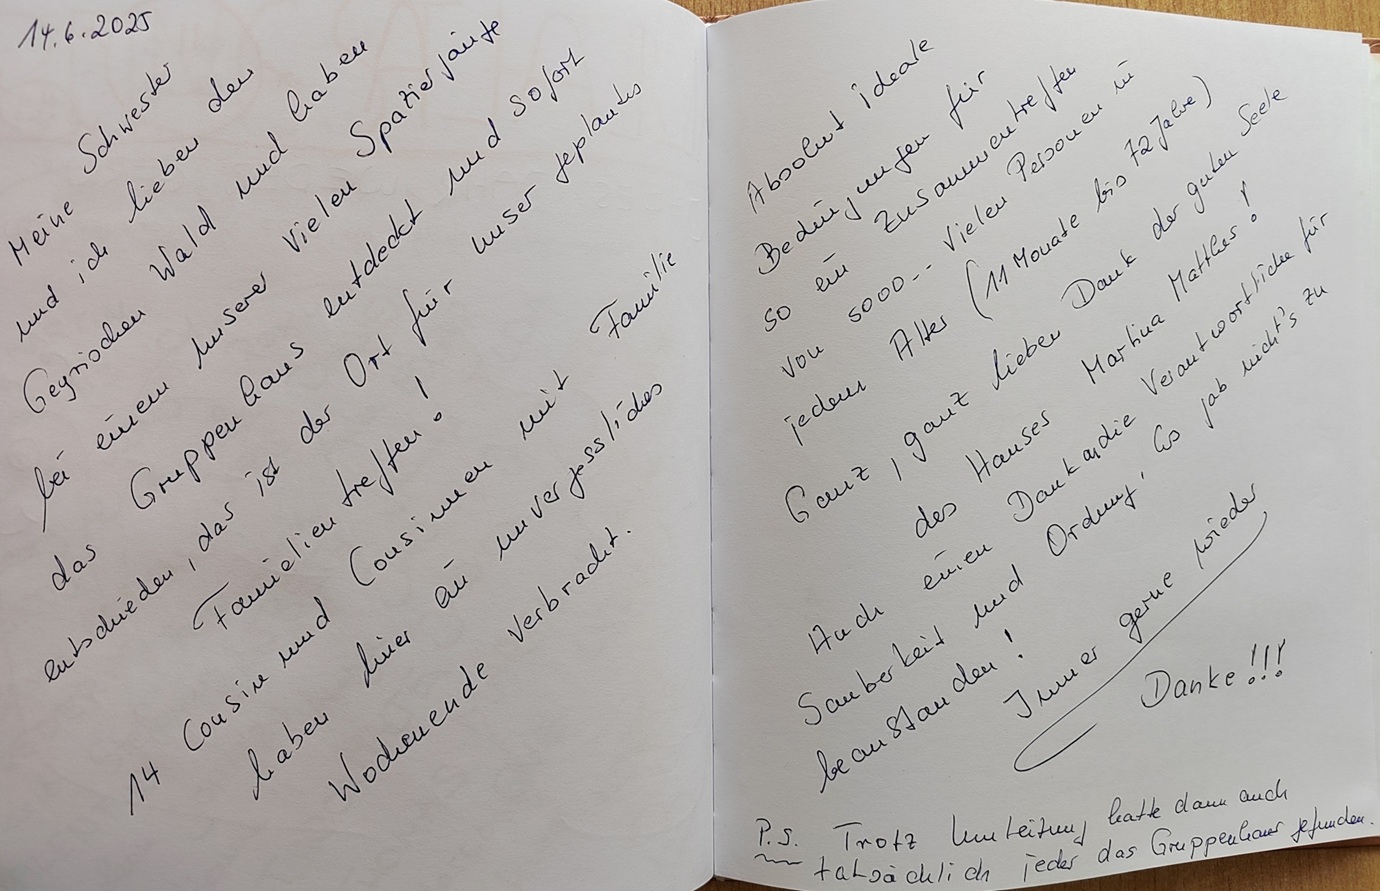 14.6.2025
Meine Schwester
und ich lieben den
Geyrischen Wald und haben
bei einem unserer vielen Spaziergänge
das Gruppenhaus entdeckt und sofort
entschieden, das ist der Ort für unser geplantes
Familientreffen!
14 Cousin und Cousinen mit Familie
haben hier ein unvergessliches
Wochenende verbracht.
Absolut ideale
Bedingungen für
so ein Zusammentreffen
von sooo-- vielen Personen in
jedem Alter (11 Monate bis 72 Jahre)
Ganz, ganz lieben Dank der guten Seele
des Hauses Martina Matthes!
Auch einen Dank an die Verantwortliche für
Sauberkeit und Ordnung, es gab nicht's zu
beanstanden!
Immer gerne wieder
Danke!!!
P.S. Trotz Umleitung hatte dann auch
tatsächlich jeder das Gruppenhaus gefunden.